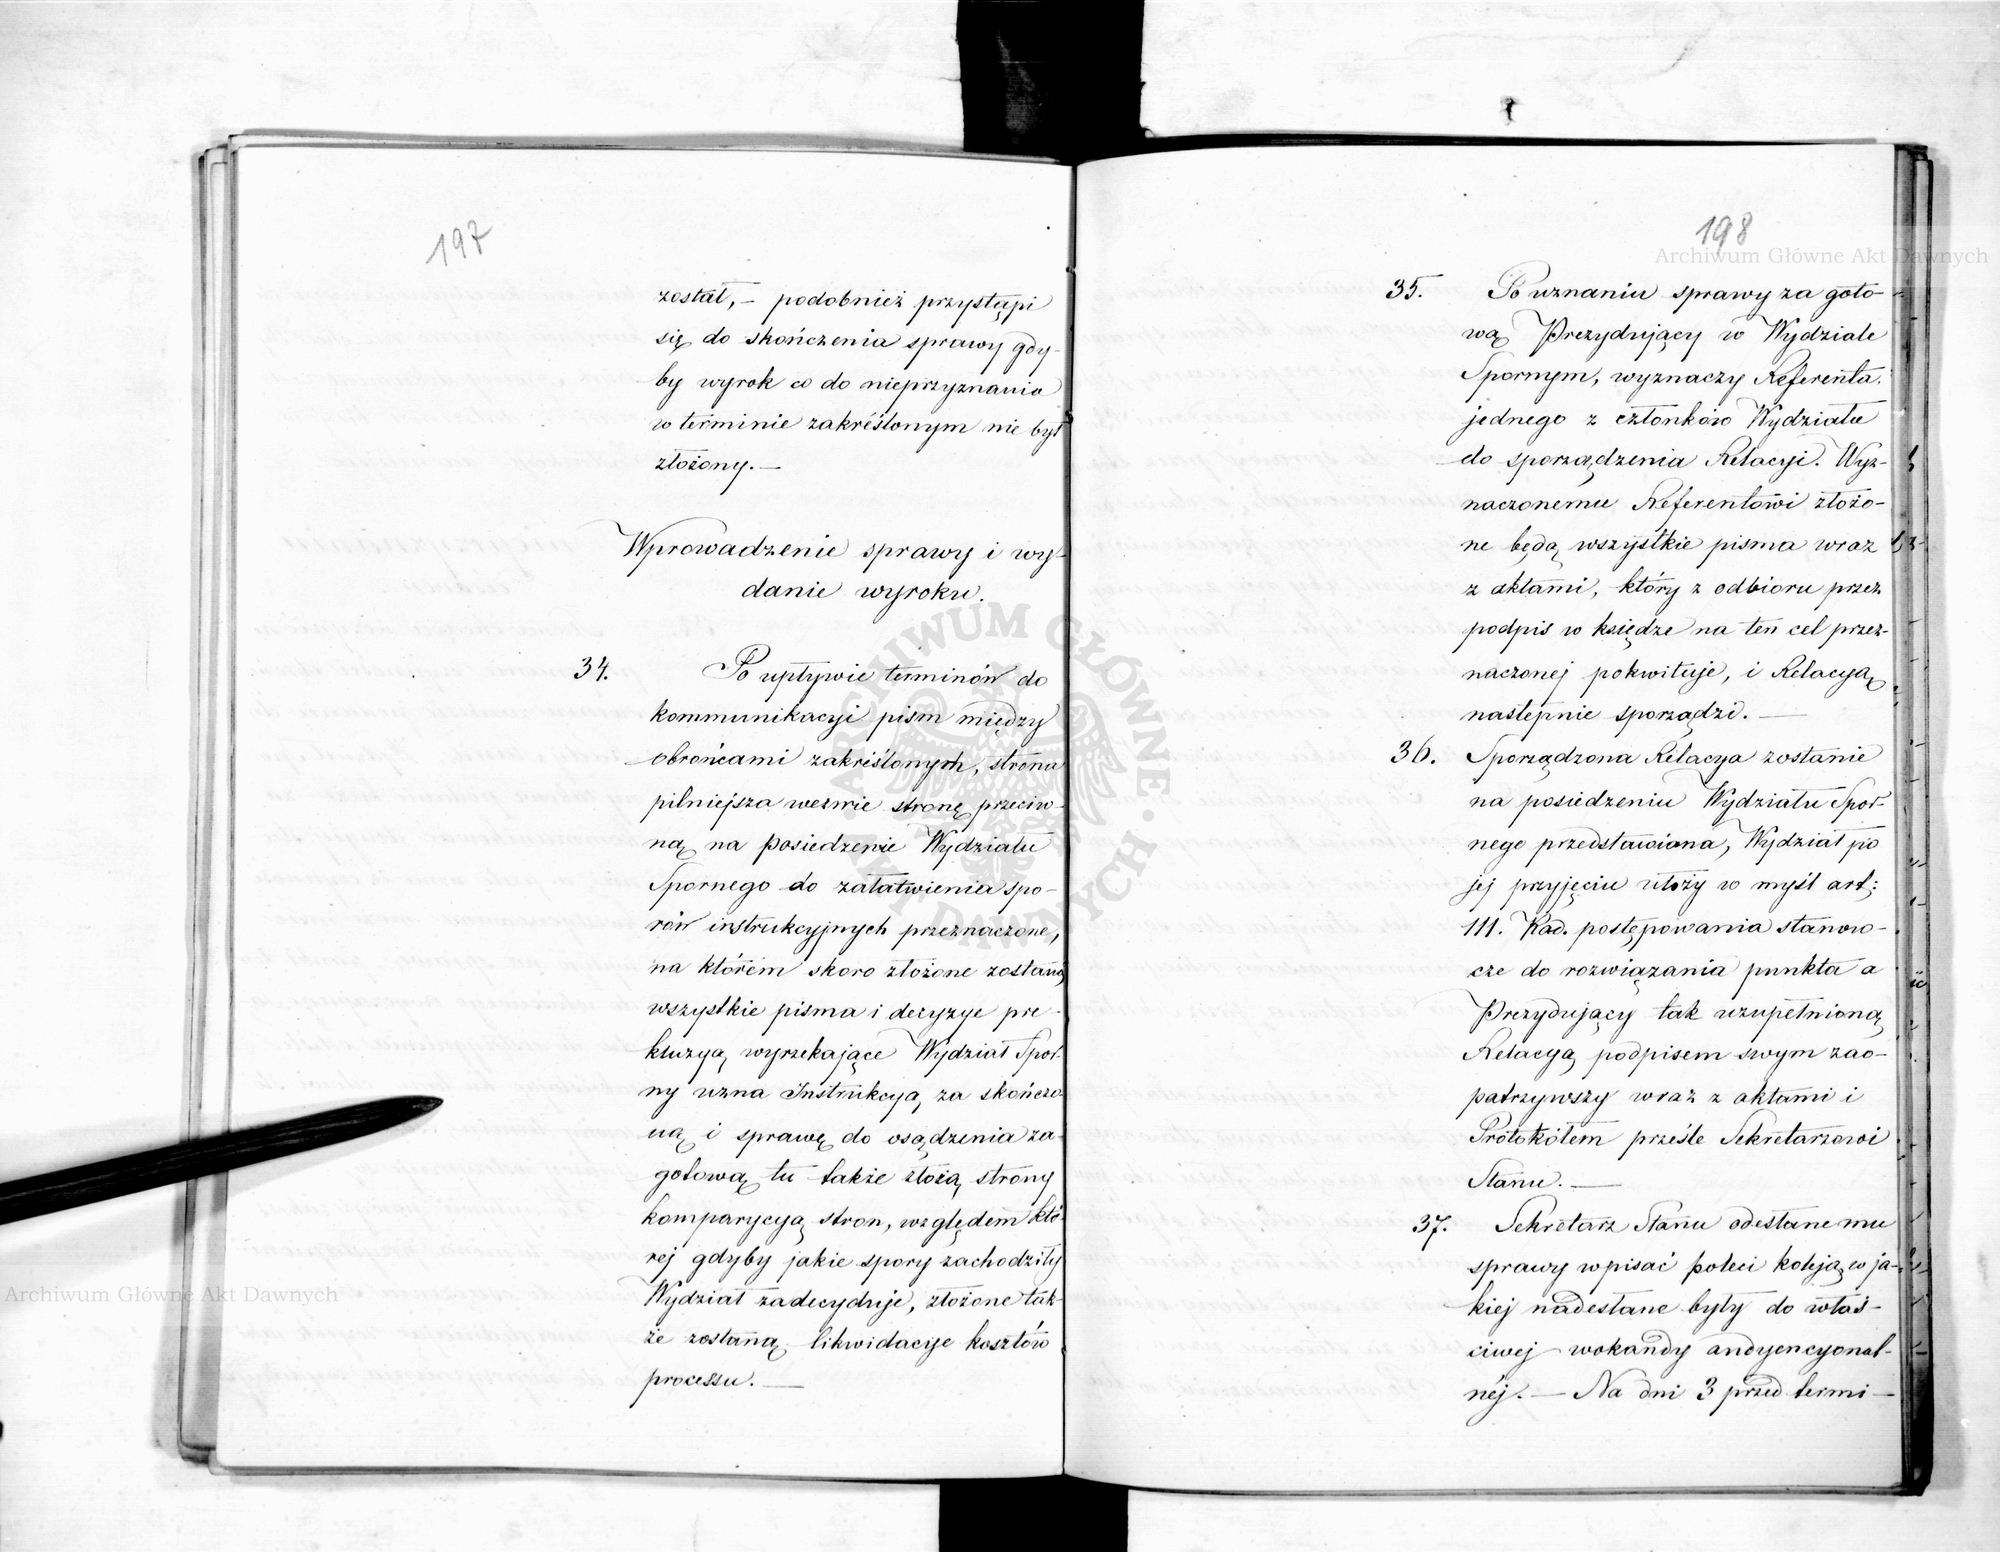 197
został, – podobnież przystąpi
się do skończenia sprawy gdy-
by wyrok co do nieprzyznania
w terminie zakreślonym nie był
złożony. –
Wprowadzenie sprawy i wy-
danie wyroku.
34. Po upływie terminów do
kommunikacyi pism między
obrońcami zakreślonym, strona
pilniejsza wezwie stronę przeciw-
ną na posiedzenie Wydziału
Spornego do załatwienia spo-
rów instrukcyjnych przeznaczone,
na którem skoro złożone zostaną
wszystkie pisma i decyzye pre-
kluzyą wyrzekające Wydział Spor-
ny uzna Instrukcyą za skończo-
ną i sprawę do osądzenia za
gotową tu także złożą strony
komparycyą stron, względem któ-
rej gdyby jakie spory zachodziły
Wydział zadecyduje, złożone tak-
że zostaną likwidacye kosztów
processu. –
198
35. Po uznaniu sprawy za goto-
wą Prezydujący w Wydziale
Spornym, wyznaczy Referenta
jednego z członków Wydziału
do sporządzenia Relacyi. Wyz-
naczonemu Referentowi złożo-
ne będą wszystkie pisma wraz
z aktami, który z odbioru przez
podpis w księdze na ten cel przez-
naczonej pokwituje, i Relacyą
następnie sporządzi. –
36. Sporządzona Relacya zostanie
na posiedzeniu Wydziału Spor-
nego przedstawiona, Wydział po
jej przyjęciu ułoży w myśl art:
111. Kod. postępowania stanow-
cze do rozwiązania punkta a
Prezydujący tak uzupełnioną
Relacyą podpisem swym zao-
patrzywszy wraz z aktami i
Protokółem prześle Sekretarzowi
Stanu. –
37. Sekretarz Stanu odesłane mu
sprawy wpisać poleci koleją w ja-
kiej nadesłane były do właś-
ciwej wokandy audyencyonal-
néj. – Na dni 3 przed termi-
Archiwum Główne Akt Dawnych
Archiwum Główne Akt Dawnych
ARCHIWUM GŁÓWNE AKT DAWNYCH